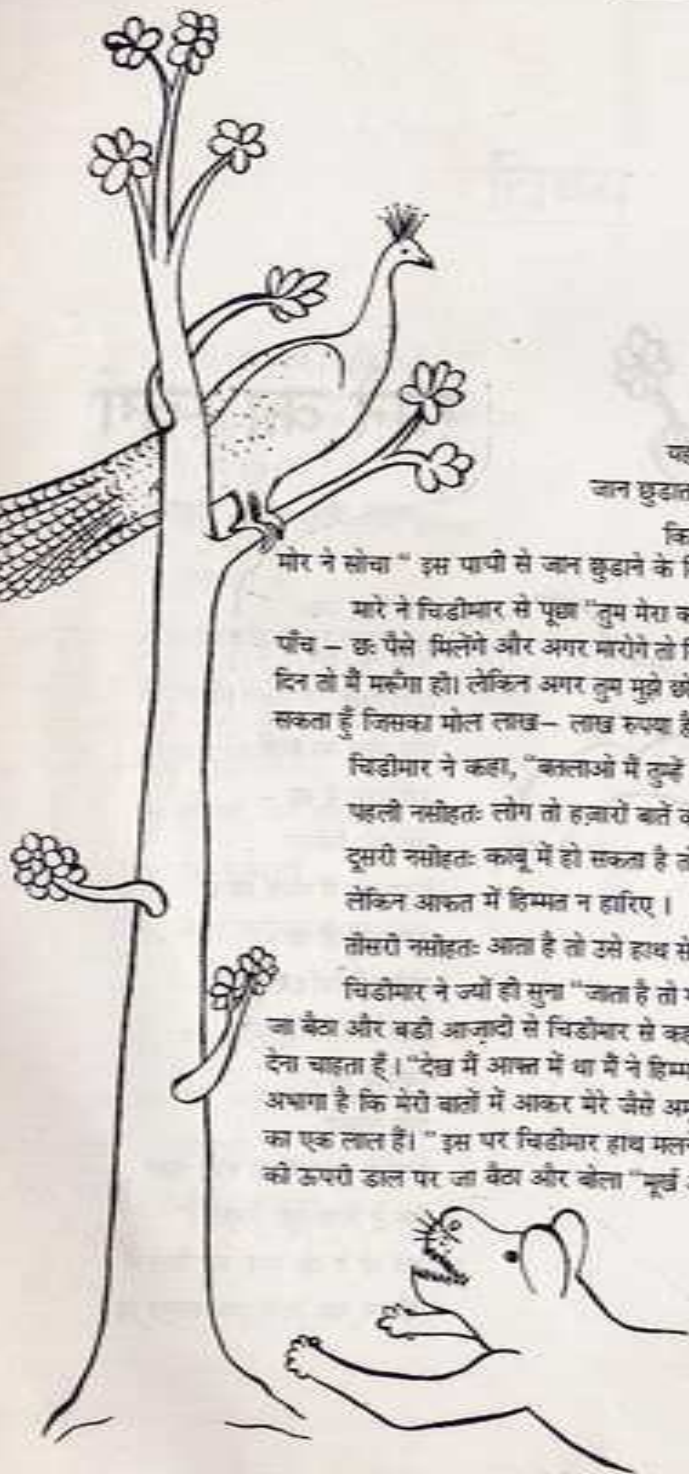 यह
जान छुडात
कि
मोर ने सोचा " इस पापी से जान छुडाने के लि
मारे ने चिडीमार से पूछा "तुम मेरा क
पाँच – छः पैसे मिलेंगे और अगर मारोगे तो
दिन तो मैं मरूँगा ही। लेकिन अगर तुम मुझे छो
सकता हूँ जिसका मोल लाख– लाख रुपया है
चिडीमार ने कहा, "बतलाओ मैं तुम्हें
पहली नसीहतः लोग तो हज़ारों बातें क
दूसरी नसीहतः काबू में हो सकता है तो
लेकिन आफत में हिम्मत न हारिए ।
तीसरी नसीहतः आता है तो उसे हाथ से
चिडीमार ने ज्यों ही सुना "जाता है तो
जा बैठा और बडी आज़ादी से चिडीमार से कह
देना चाहता हूँ । "देख मैं आफ्त में था मैं ने हिम्म
अभागा है कि मेरी बातों में आकर मेरे जैसे अम
का एक लाल हैं। " इस पर चिडीमार हाथ मलन
की ऊपरी डाल पर जा बैठा और बोला "मूर्ख